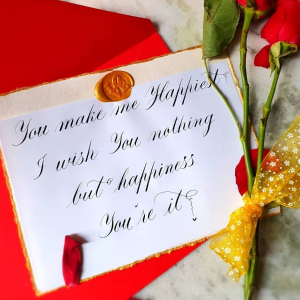 You make me Happiest
I wish You nothing
but happiness
You're it